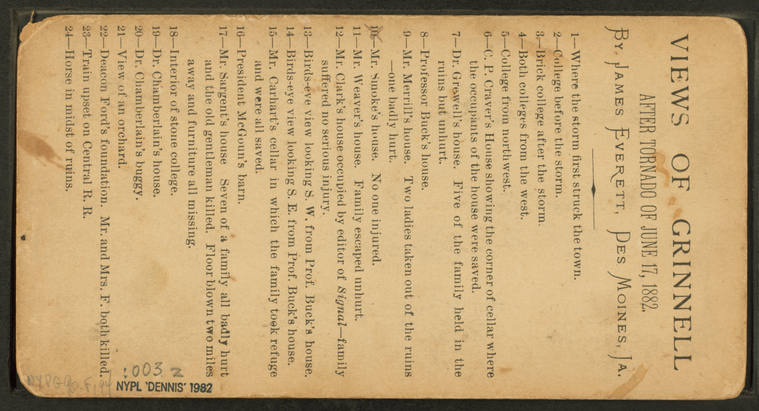 VIEWS OF GRINNELL
AFTER TORNADO OF JUNE 17, 1882,
BY JAMES EVERETT, DES MOINES, IA.
1—Where the storm first struck the town.
2—College before the storm.
3—Brick college after the storm.
4—Both colleges from the west.
5—College from northwest.
6—C. P. Craver's House showing the corner of cellar where
the occupants of the house were saved.
7—Dr. Grewell's house. Five of the family held in the
ruins but unhurt.
8—Professor Buck's house.
9—Mr. Merrill's house. Two ladies taken out of the ruins
—one badly hurt.
10—Mr. Smoke's house. No one injured.
11—Mr. Weaver's house. Family escaped unhurt.
12—Mr. Clark's house occupied by editor of Signal—family
suffered no serious injury.
13—Birds-eye view looking S. W. from Prof. Buck's house.
14—Birds-eye view looking S. E. from Prof. Buck's house.
15—Mr. Carhart's cellar in which the family took refuge
and were all saved.
16—President McGoun's barn.
17—Mr. Sargent's house Seven of a family all badly hurt
and the old gentleman killed. Floor blown two miles
away and furniture all missing.
18—Interior of stone college.
19—Dr. Chamberlain's house.
20—Dr. Chamberlain's buggy.
21—View of an orchard.
22—Deacon Ford's foundation. Mr. and Mrs. F. both killed.
23—Train upset on Central R. R.
24—Horse in midst of ruins.
:003 z
NYPL 'DENNIS' 1982